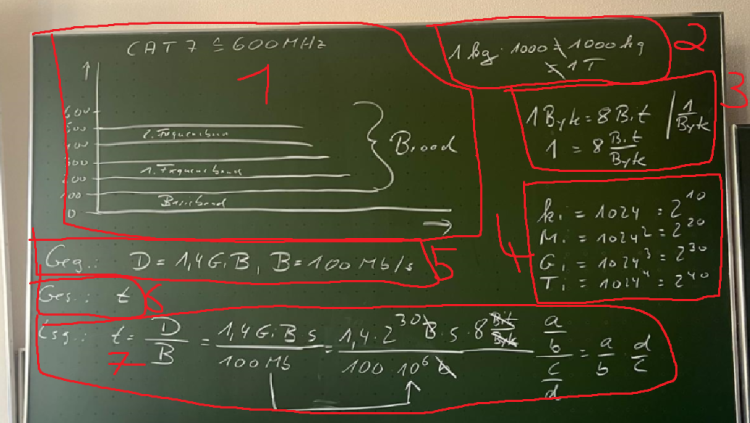 CAT 7 ≙ 600MHz
1
600
500
400
300
200
100
0
2. Frequenzband
1. Frequenzband
Basisband
Broad
1 kg · 1000 = 1000 kg
= 1 T
2
1 Byte = 8 Bit | 1/Byte
1 = 8 Bit/Byte
3
ki = 1024 = 2^10
Mi = 1024^2 = 2^20
Gi = 1024^3 = 2^30
Ti = 1024^4 = 2^40
4
Geg.: D = 1,4 GiB, B = 100 Mb/s
5
Ges.: t
6
Lsg.: t = D/B = 1,4 GiB s/100 Mb = 1,4 · 2^30 B · s · 8 Bit/Byte / 100 · 10^6 b
a/b / c/d = a/b · d/c
7